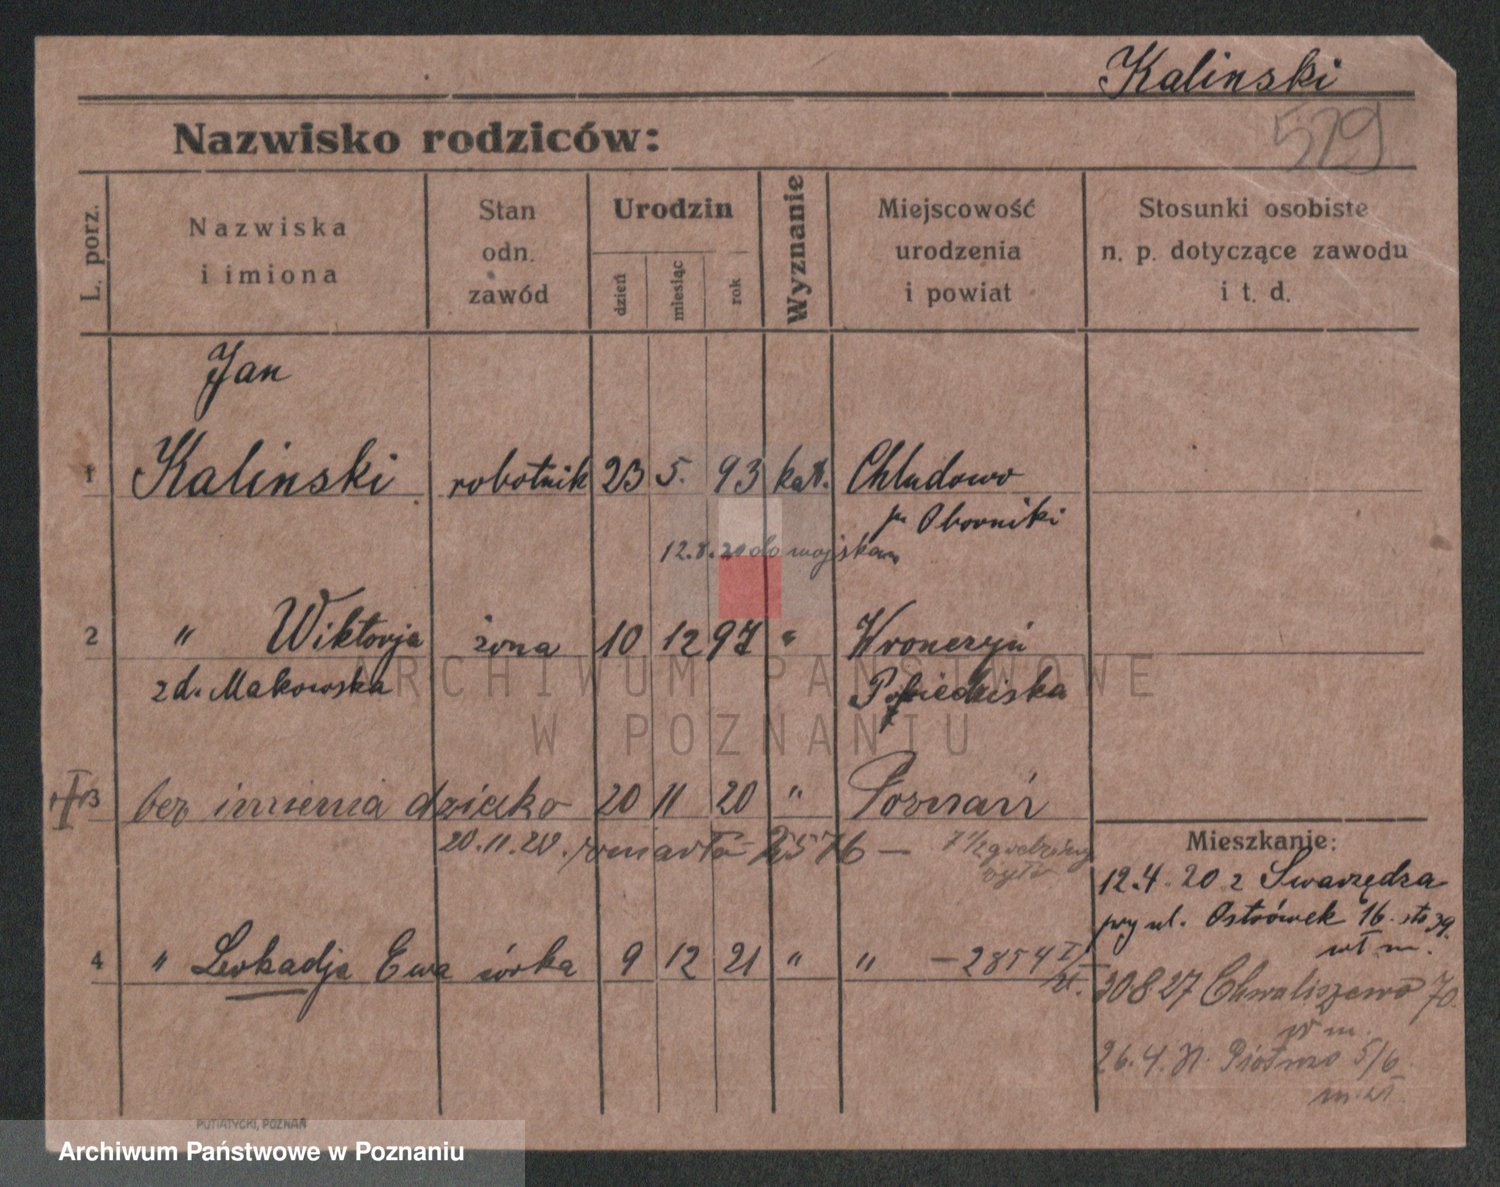 Kalinski
579
Nazwisko rodziców:
L. porz.
Nazwiska
i imiona
Stan
odn.
zawód
Urodzin
dzień
miesiąc
rok
Wyznanie
Miejscowość
urodzenia
i powiat
Stosunki osobiste
n. p. dotyczące zawodu
i t. d.
Jan
1 Kalinski robotnik 23 5. 93 kat. Chludowo
p. Oborniki
12.8.20 do wojska
2 " Wiktorja żona 10 12 97 " Wronczyn
zd. Makowska Pobiedziska
3 bez imienia dziecko 20 11 20 " Poznań
20.11.20. zmarło 2576 — 7 1/2 godziny
4 " Leokadja Ewa córka 9 12 21 " " - 2854
Mieszkanie:
12.4.20 z Swarzędza
przy ul. Ostrówek 16. str 39.
wł m.
30 8 27 Chwaliszewo 70.
w m.
26.4. Piotrowo 5/6
m. wł.
ARCHIWUM PAŃSTWOWE
W POZNANIU
PUTIATYCKI, POZNAŃ
Archiwum Państwowe w Poznaniu